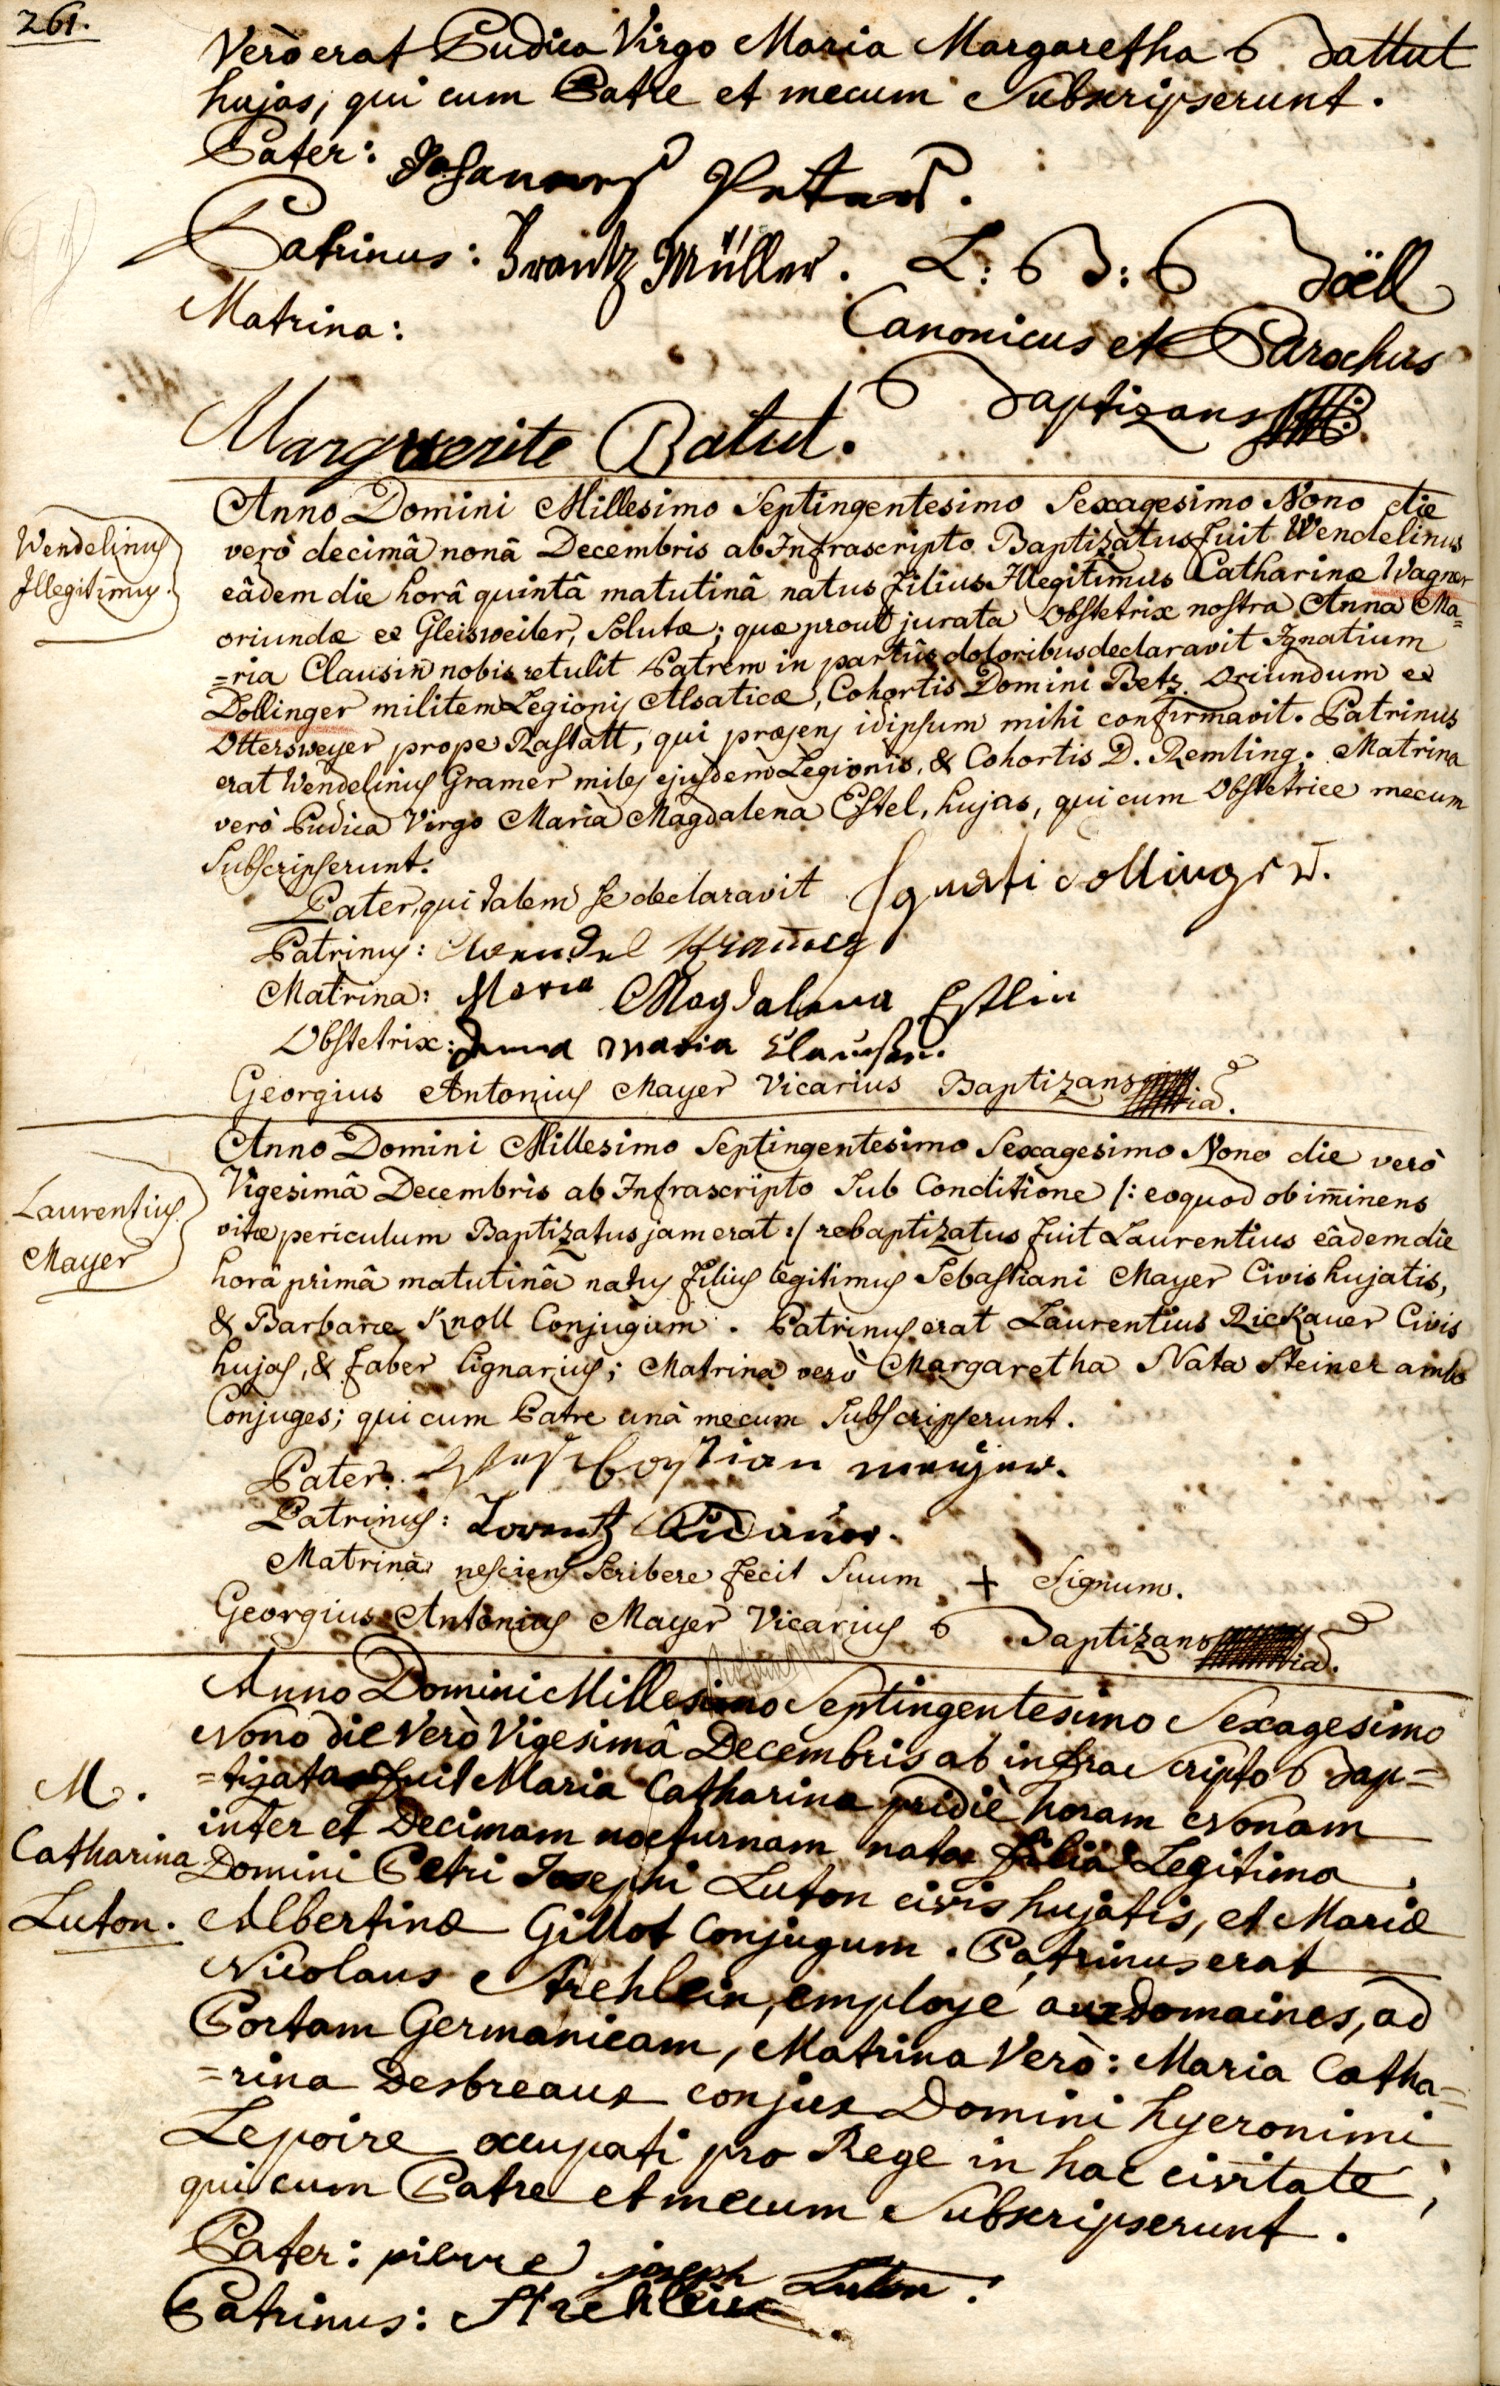 261.
Verò erat Pudica Virgo Maria Margaretha Battut
hujas, qui cum Patre et mecum Subscripserunt.
Pater: Johannes Petter.
Patrinus: Frantz Müller. L: B: Böell
Matrina: Canonicus et Parochus
Baptizans
Marguerite Batut.
Wendelinus
Illegitimus.
Anno Domini Millesimo Septingentesimo Sexagesimo Nono die
verò decimâ nonâ Decembris ab Infrascripto Baptizatus fuit Wendelinus
eâdem die horâ quintâ matutinâ natus filius Illegitimus Catharinæ Wagner
oriundæ ex Gleisweiler, Solutæ; quæ prout jurata Obstetrix nostra Anna Ma=
=ria Clausin nobis retulit Patrem in partûs doloribus declaravit Ignatium
Dollinger militem Legionis Alsaticæ, Cohortis Domini Betz Oriundum ex
Ottersweyer prope Rastatt, qui præsens idipsum mihi confirmavit. Patrinus
erat Wendelinus Gramer miles ejusdem Legionis, & Cohortis D. Remling. Matrina
verò Pudica Virgo Maria Magdalena Estel, hujas, qui cum Obstetrice mecum
Subscripserunt.
Pater, qui talem se declaravit Ignati dollinger.
Patrinus: Wendel
Matrina: Maria Magdalena Estlin
Obstetrix: Anna Maria Clausin.
Georgius Antonius Mayer Vicarius Baptizans
Laurentius
Mayer
Anno Domini Millesimo Septingentesimo Sexagesimo Nono die verò
Vigesimâ Decembris ab Infrascripto Sub Conditione /: eoquod ob im̄inens
vitæ periculum Baptizatus jam erat :/ rebaptizatus fuit Laurentius eâdem die
horâ primâ matutinâ natus filius legitimus Sebastiani Mayer Civis hujatis,
& Barbaræ Knoll Conjugum. Patrinus erat Laurentius Rickauer Civis
hujas, & faber lignarius; Matrina verò Margaretha Nata Steiner ambo
Conjuges; qui cum Patre unâ mecum Subscripserunt.
Pater:
Patrinus: Lorentz
Matrina nesciens Scribere fecit Suum + Signum.
Georgius Antonius Mayer Vicarius Baptizans
M.
Catharina
Luton.
Anno Domini Millesimo Septingentesimo Sexagesimo
Nono die Verò Vigesimâ Decembris ab infra Scripto Bap=
=tizata fuit Maria Catharina pridiè horam Nonam
inter et Decimam nocturnam nata filia Legitima
Domini Petri Josephi Luton civis hujatis, et Mariæ
Albertinæ Gillot Conjugum. Patrinus erat
Nicolaus Strehlein, employé aux Domaines, ad
Portam Germanicam, Matrina Verò: Maria Catha=
=rina Desbreaux conjux Domini hyeronimi
Lepoire occupati pro Rege in hac civitate,
qui cum Patre et mecum Subscripserunt.
Pater: pierre joseph Luton.
Patrinus: Strehlein